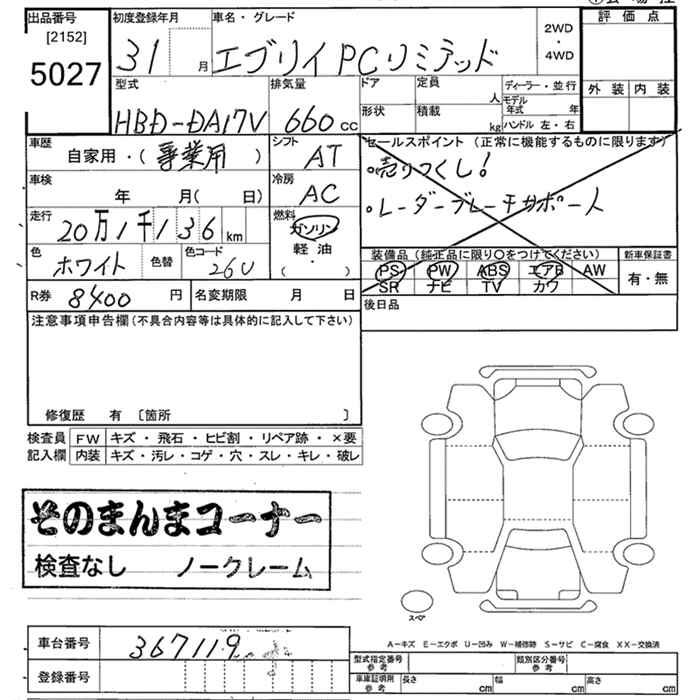 出品番号
[2152]
5027
初度登録年月
31 月
車名・グレード
エブリイPCリミテッド
2WD
・
4WD
評価点
外装 内装
型式
HBD-DA17V
排気量
660 cc
ドア
形状
定員 人
積載 kg
ディーラー・並行
モデル年式 年
ハンドル 左・右
車歴
自家用・(事業用)
シフト
AT
車検
年 月( 日)
冷房
AC
走行
20万1千136 km
燃料
ガソリン
軽・油
( ・ )
色
ホワイト
色替
色コード
26U
R券 8400 円
名変期限 月 日
セールスポイント(正常に機能するものに限ります)
・売りつくし!
・レーダーブレーキサポート
装備品(純正品に限り〇をつけてください)
PS PW ABS エアB AW
SR ナビ TV カワ
新車保証書
有・無
後日品
注意事項申告欄(不具合内容等は具体的に記入して下さい)
修復歴 有 〔箇所 〕
検査員記入欄
FW キズ・飛石・ヒビ割・リペア跡・×要
内装 キズ・汚レ・コゲ・穴・スレ・キレ・破レ
そのまんまコーナー
検査なし ノークレーム
スペア
A-キズ E-エクボ U-凹み W-補修跡 S-サビ C-腐食 XX-交換済
車台番号 367119
登録番号
型式指定番号 参考
類別区分番号 参考
車庫証明用 参考
長さ cm 幅 cm 高さ cm